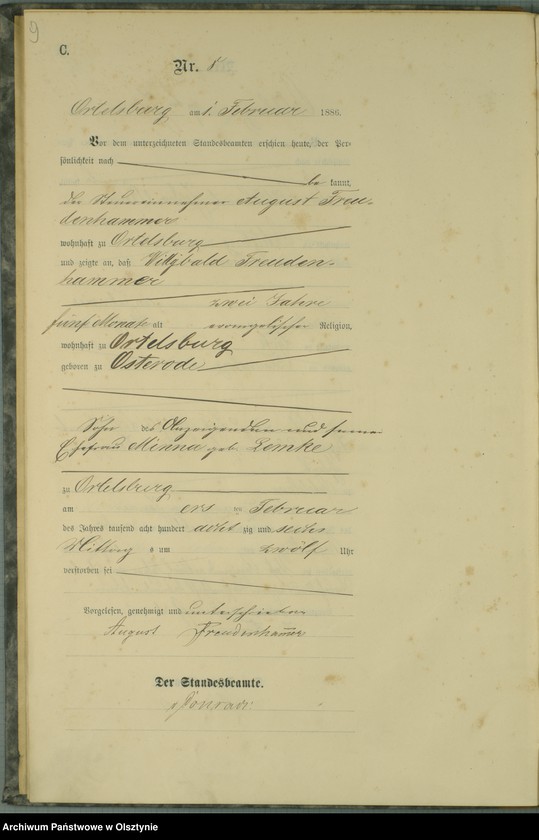 9
C.
Nr.
Ortelsburg am 1. Februar 1886.
Vor dem unterzeichneten Standesbeamten erschien heute, der Per-
sönlichkeit nach
be kannt,
der Steuereinnehmer August Freu-
denhammer
wohnhaft zu Ortelsburg
und zeigte an, daß Willybald Freuden-
hammer
zwei Jahre
fünf Monate alt evangelischer Religion,
wohnhaft zu Ortelsburg
geboren zu Osterode
Sohn des Anzeigenden und seiner
Ehefrau Minna geb. Lemke
zu Ortelsburg
am ersten Februar
des Jahres tausend acht hundert acht zig und sechs
Mittags um zwölf Uhr
verstorben sei
Vorgelesen, genehmigt und unterschrieben
August Freudenhammer
Der Standesbeamte.
Archiwum Państwowe w Olsztynie